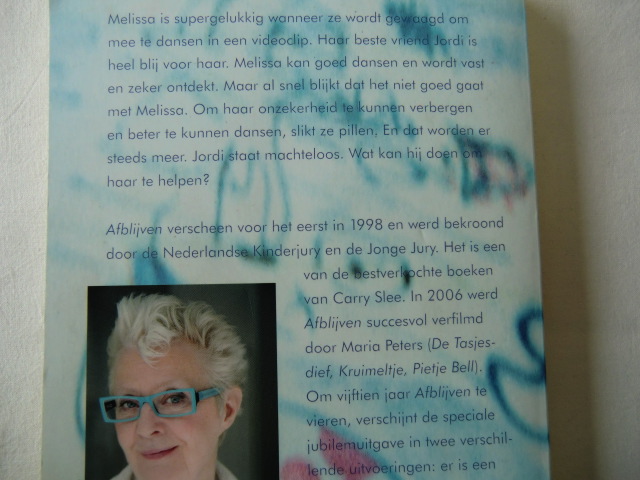 Melissa is supergelukkig wanneer ze wordt gevraagd om
mee te dansen in een videoclip. Haar beste vriend Jordi is
heel blij voor haar. Melissa kan goed dansen en wordt vast
en zeker ontdekt. Maar al snel blijkt dat het niet goed gaat
met Melissa. Om haar onzekerheid te kunnen verbergen
en beter te kunnen dansen, slikt ze pillen. En dat worden er
steeds meer. Jordi staat machteloos. Wat kan hij doen om
haar te helpen?
Afblijven verscheen voor het eerst in 1998 en werd bekroond
door de Nederlandse Kinderjury en de Jonge Jury. Het is een
van de bestverkochte boeken
van Carry Slee. In 2006 werd
Afblijven succesvol verfilmd
door Maria Peters (De Tasjes-
dief, Kruimeltje, Pietje Bell).
Om vijftien jaar Afblijven te
vieren, verschijnt de speciale
jubileumuitgave in twee verschil-
lende uitvoeringen: er is een